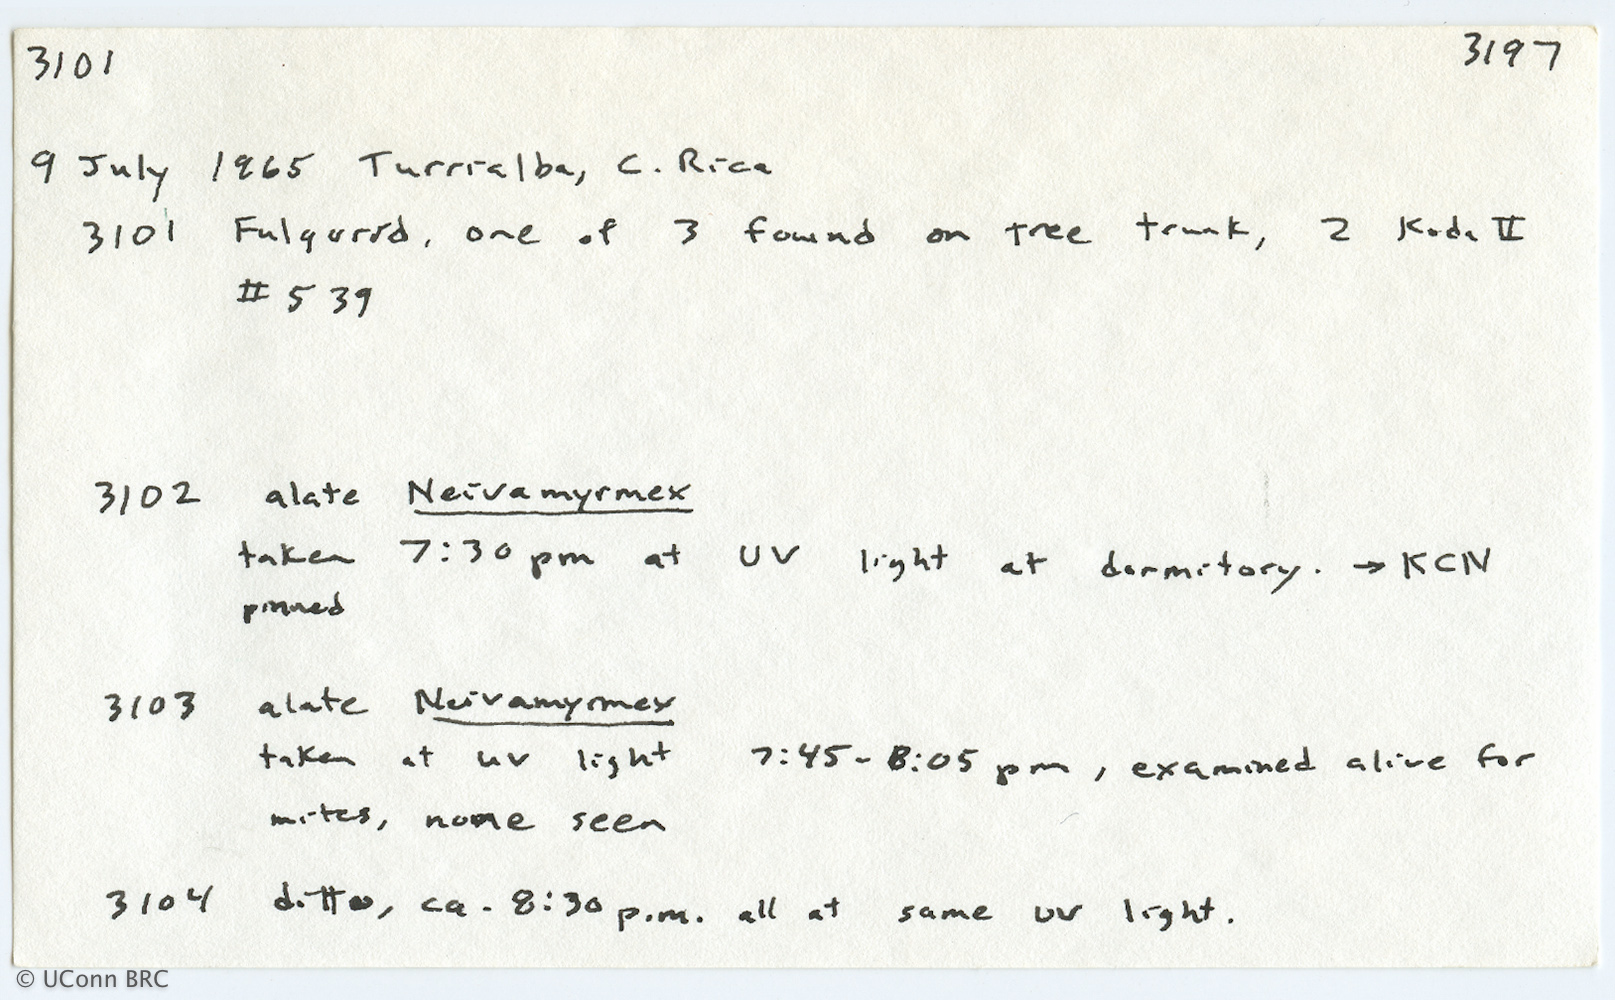 3101 3197
9 July 1965 Turrialba, C. Rica
3101 Fulgorid, one of 3 found on tree trunk, 2 Koda II
#539
3102 alate Neivamyrmex
taken 7:30 pm at UV light at dormitory. → KCN
pinned
3103 alate Neivamyrmex
taken at uv light 7:45-8:05 pm, examined alive for
mites, none seen
3104 ditto, ca. 8:30 p.m. all at same uv light.
© UConn BRC